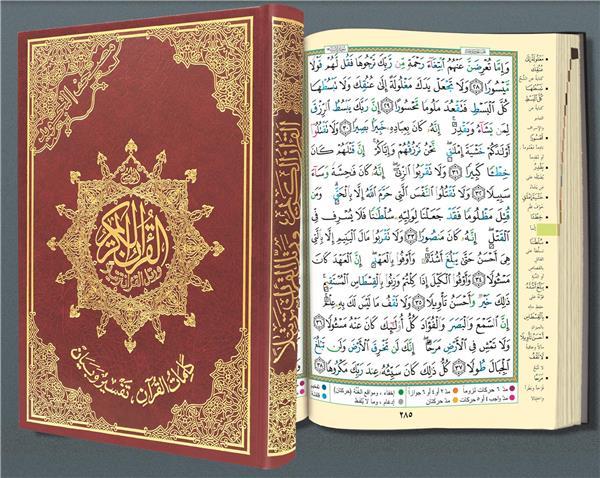 مصحف التجويد
القرآن الكريم
ورتل القرآن ترتيلا
كلمات القرآن، تفسير وبيان
القرآن الكريم ورتل القرآن ترتيلا
وَإِمَّا تُعْرِضَنَّ عَنْهُمُ ٱبْتِغَآءَ رَحْمَةٍ مِّن رَّبِّكَ تَرْجُوهَا فَقُل لَّهُمْ قَوْلًا
مَّيْسُورًا ٢٨ وَلَا تَجْعَلْ يَدَكَ مَغْلُولَةً إِلَىٰ عُنُقِكَ وَلَا تَبْسُطْهَا
كُلَّ ٱلْبَسْطِ فَتَقْعُدَ مَلُومًا مَّحْسُورًا ٢٩ إِنَّ رَبَّكَ يَبْسُطُ ٱلرِّزْقَ
لِمَن يَشَآءُ وَيَقْدِرُ إِنَّهُۥ كَانَ بِعِبَادِهِۦ خَبِيرًۢا بَصِيرًا ٣٠ وَلَا تَقْتُلُوٓا۟
أَوْلَٰدَكُمْ خَشْيَةَ إِمْلَٰقٍ نَّحْنُ نَرْزُقُهُمْ وَإِيَّاكُمْ إِنَّ قَتْلَهُمْ كَانَ
خِطْـًٔا كَبِيرًا ٣١ وَلَا تَقْرَبُوا۟ ٱلزِّنَىٰٓ إِنَّهُۥ كَانَ فَٰحِشَةً وَسَآءَ
سَبِيلًا ٣٢ وَلَا تَقْتُلُوا۟ ٱلنَّفْسَ ٱلَّتِى حَرَّمَ ٱللَّهُ إِلَّا بِٱلْحَقِّ وَمَن
قُتِلَ مَظْلُومًا فَقَدْ جَعَلْنَا لِوَلِيِّهِۦ سُلْطَٰنًا فَلَا يُسْرِف فِّى
ٱلْقَتْلِ إِنَّهُۥ كَانَ مَنصُورًا ٣٣ وَلَا تَقْرَبُوا۟ مَالَ ٱلْيَتِيمِ إِلَّا بِٱلَّتِى
هِىَ أَحْسَنُ حَتَّىٰ يَبْلُغَ أَشُدَّهُۥ وَأَوْفُوا۟ بِٱلْعَهْدِ إِنَّ ٱلْعَهْدَ كَانَ
مَسْـُٔولًا ٣٤ وَأَوْفُوا۟ ٱلْكَيْلَ إِذَا كِلْتُمْ وَزِنُوا۟ بِٱلْقِسْطَاسِ ٱلْمُسْتَقِيمِ
ذَٰلِكَ خَيْرٌ وَأَحْسَنُ تَأْوِيلًا ٣٥ وَلَا تَقْفُ مَا لَيْسَ لَكَ بِهِۦ عِلْمٌ
إِنَّ ٱلسَّمْعَ وَٱلْبَصَرَ وَٱلْفُؤَادَ كُلُّ أُو۟لَٰٓئِكَ كَانَ عَنْهُ مَسْـُٔولًا ٣٦
وَلَا تَمْشِ فِى ٱلْأَرْضِ مَرَحًا إِنَّكَ لَن تَخْرِقَ ٱلْأَرْضَ وَلَن تَبْلُغَ
ٱلْجِبَالَ طُولًا ٣٧ كُلُّ ذَٰلِكَ كَانَ سَيِّئُهُۥ عِندَ رَبِّكَ مَكْرُوهًا ٣٨
مدّ ٦ حركات لزوماً
مدّ ٢ أو ٤ أو ٦ جوازاً
إخفاء، ومواقع الغنّة (حركتان)
تفخيم
مدّ واجب ٤ أو ٥ حركات
مدّ حركتان
إدغام، وما لا يُلفظ
قلقلة
٢٨٥
مغلولة إلى
عنقك
تبسطها
كل البسط
محسوراً
يقدر
خشية إملاق
خطئاً
سلطاناً
يبلغ أشده
بالقسطاس
لا تقف
مرحاً